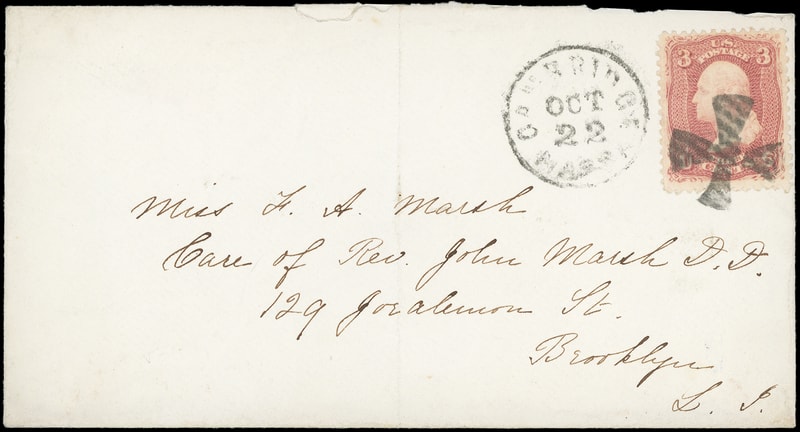 CAMBRIDGE
OCT
22
MASS.
3 U.S. 3
POSTAGE
Miss F. A. Marsh
Care of Rev. John Marsh D.D.
129 Joralemon St.
Brooklyn
L. I.